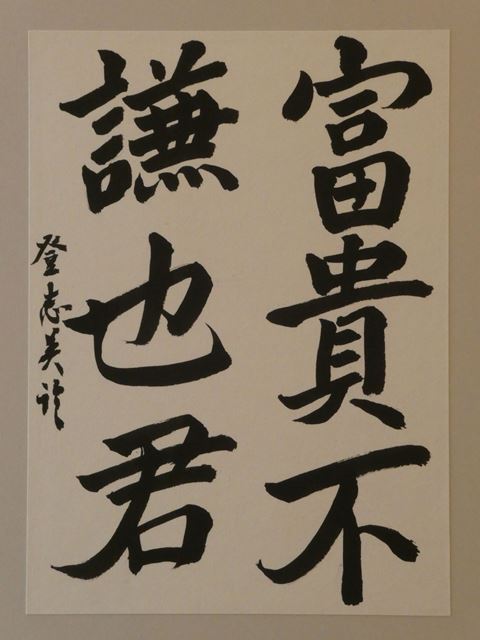 富貴不
謙也君
登志美臨